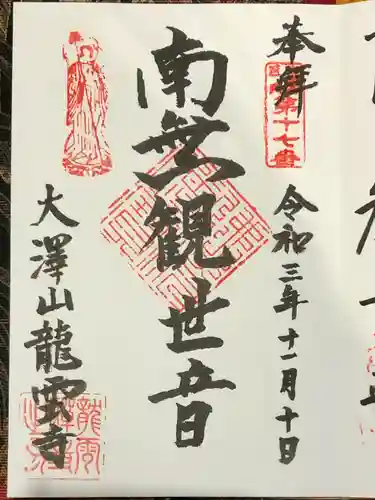 奉拝
第十七番
令和三年十一月十日
南無観世音
大澤山龍雲寺